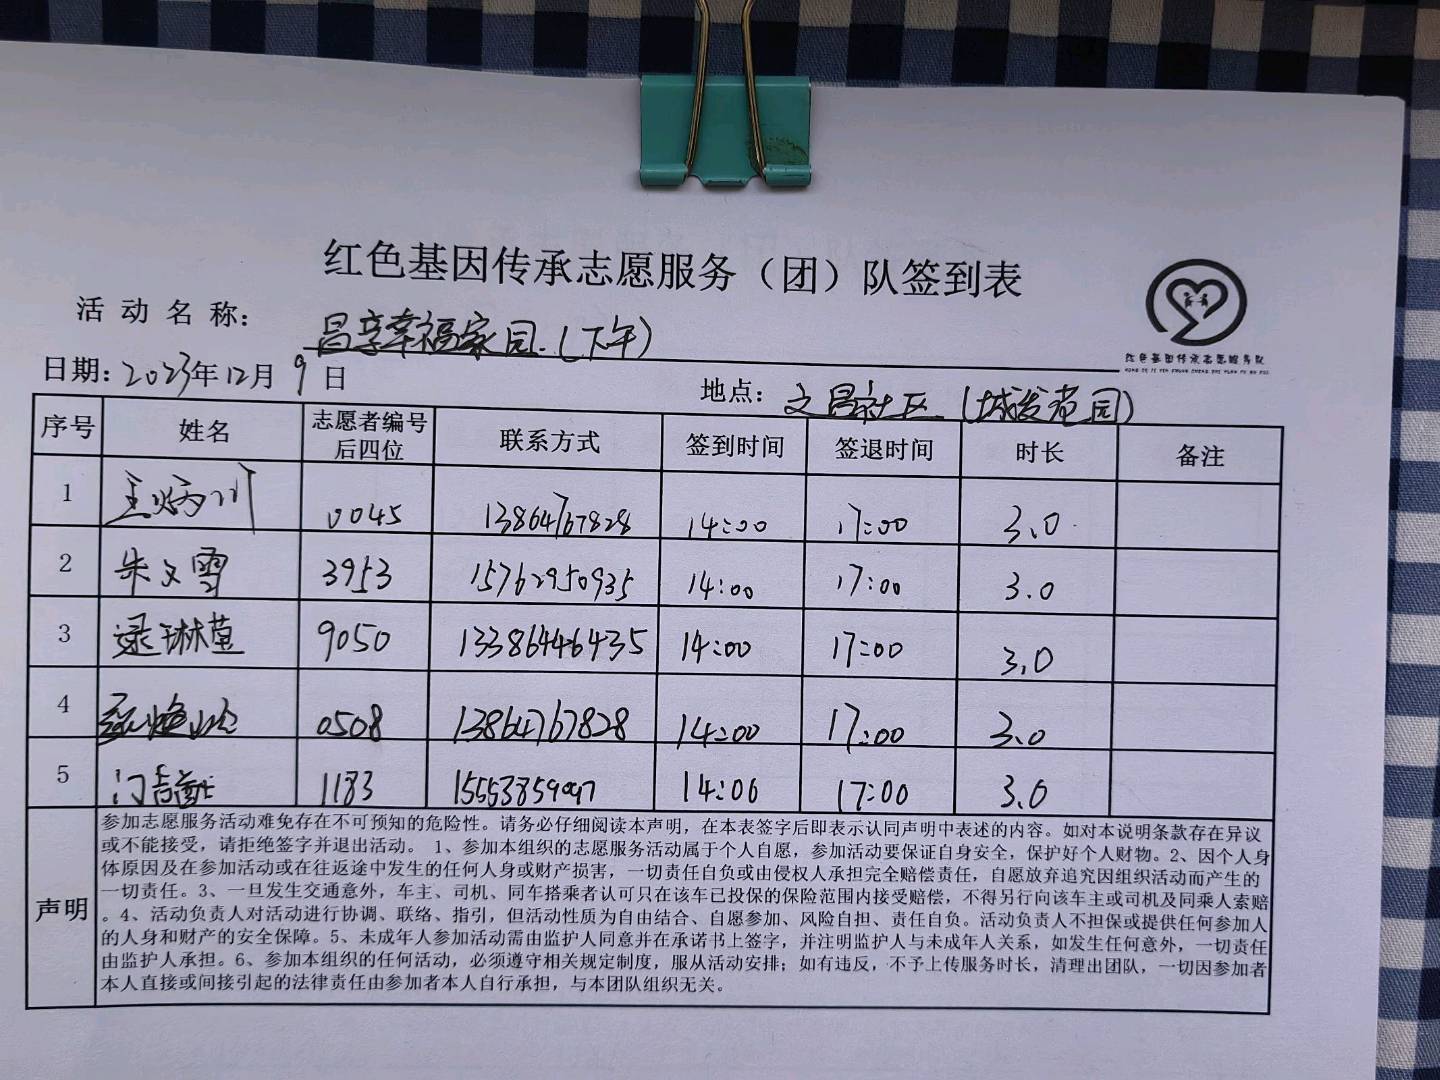 红色基因传承志愿服务（团）队签到表
活动名称：
昌享幸福家园.(下午)
红色基因传承志愿服务队
日期：2023年12月9日
地点：文昌社区.(城发花园)
序号 姓名 志愿者编号后四位 联系方式 签到时间 签退时间 时长 备注
1 王炳川 0045 13864767828 14:00 17:00 3.0
2 朱文雪 3953 15762950935 14:00 17:00 3.0
3 逯琳莹 9050 13386446435 14:00 17:00 3.0
4 0508 13864767828 14:00 17:00 3.0
5 1183 14:06 17:00 3.0
声明
参加志愿服务活动难免存在不可预知的危险性。请务必仔细阅读本声明，在本表签字后即表示认同声明中表述的内容。如对本说明条款存在异议
或不能接受，请拒绝签字并退出活动。 1、参加本组织的志愿服务活动属于个人自愿，参加活动要保证自身安全，保护好个人财物。2、因个人身
体原因及在参加活动或在往返途中发生的任何人身或财产损害，一切责任自负或由侵权人承担完全赔偿责任，自愿放弃追究因组织活动而产生的
一切责任。3、一旦发生交通意外，车主、司机、同车搭乘者认可只在该车已投保的保险范围内接受赔偿，不得另行向该车主或司机及同乘人索赔
。4、活动负责人对活动进行协调、联络、指引，但活动性质为自由结合、自愿参加、风险自担、责任自负。活动负责人不担保或提供任何参加人
的人身和财产的安全保障。5、未成年人参加活动需由监护人同意并在承诺书上签字，并注明监护人与未成年人关系，如发生任何意外，一切责任
由监护人承担。6、参加本组织的任何活动，必须遵守相关规定制度，服从活动安排；如有违反，不予上传服务时长，清理出团队，一切因参加者
本人直接或间接引起的法律责任由参加者本人自行承担，与本团队组织无关。